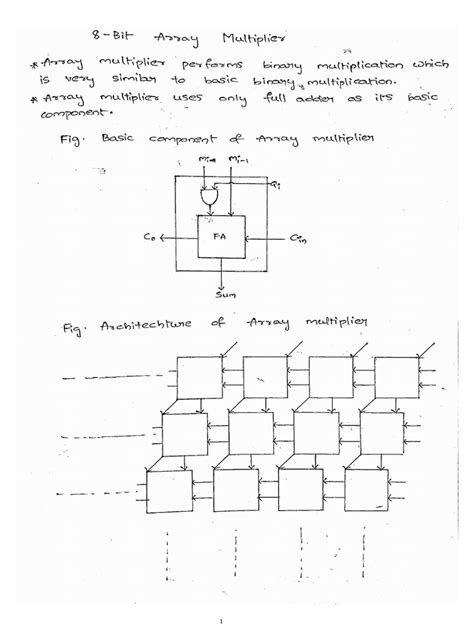 8-Bit Array Multiplier
* Array multiplier performs binary multiplication which
is very similar to basic binary multiplication.
* Array multiplier uses only full adder as its basic
component.
Fig. Basic component of Array multiplier
Mi-1
Qi
FA
Co
Cin
Sum
Fig. Architechture of Array multiplier
1